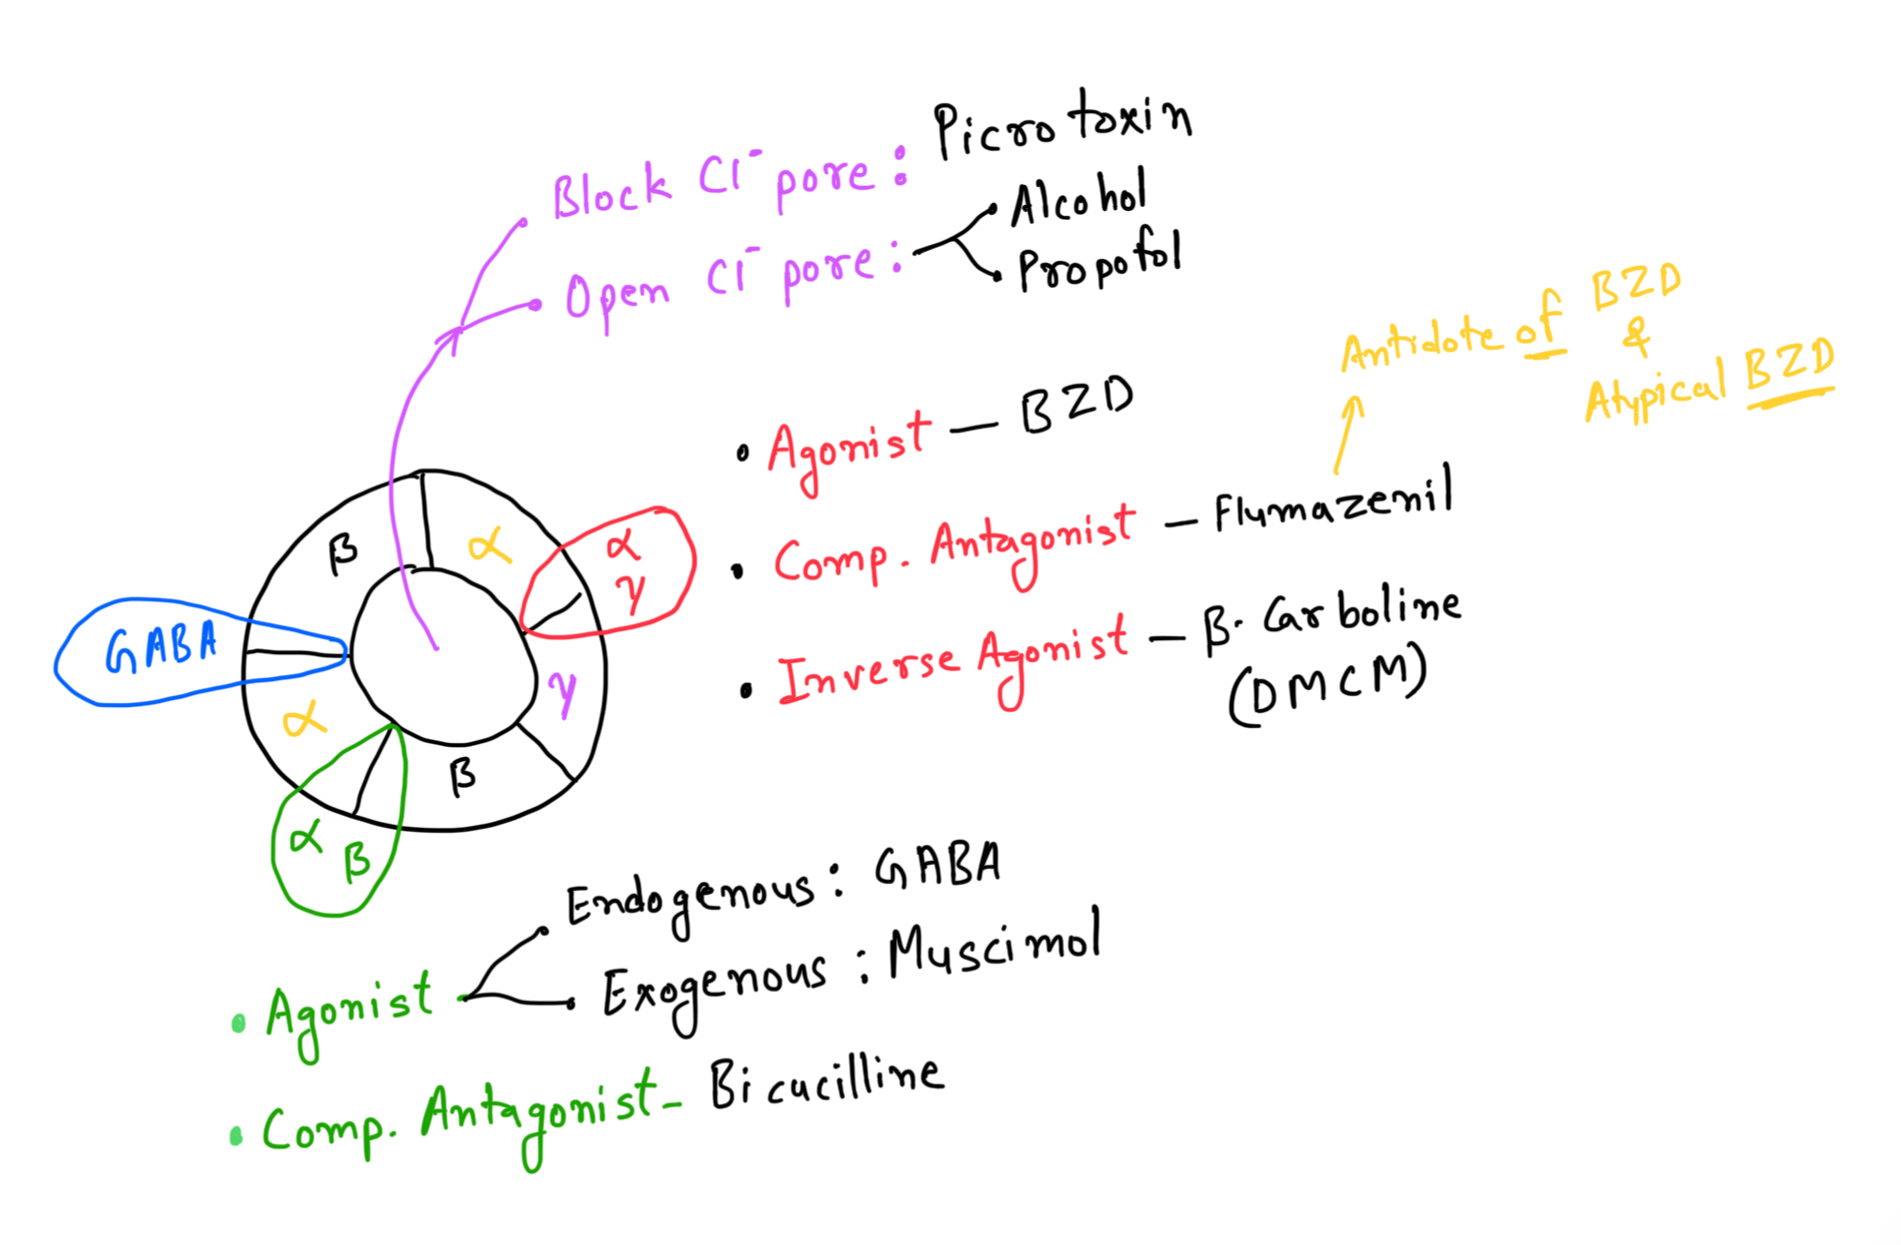 Block Cl⁻ pore : Picrotoxin
Open Cl⁻ pore : Alcohol
Propofol
Antidote of BZD
&
Atypical BZD
• Agonist — BZD
• Comp. Antagonist — Flumazenil
• Inverse Agonist — β-Carboline
(DMCM)
β
α
α
γ
GABA
γ
α
β
α
β
• Agonist
Endogenous : GABA
Exogenous : Muscimol
• Comp. Antagonist - Bicucilline